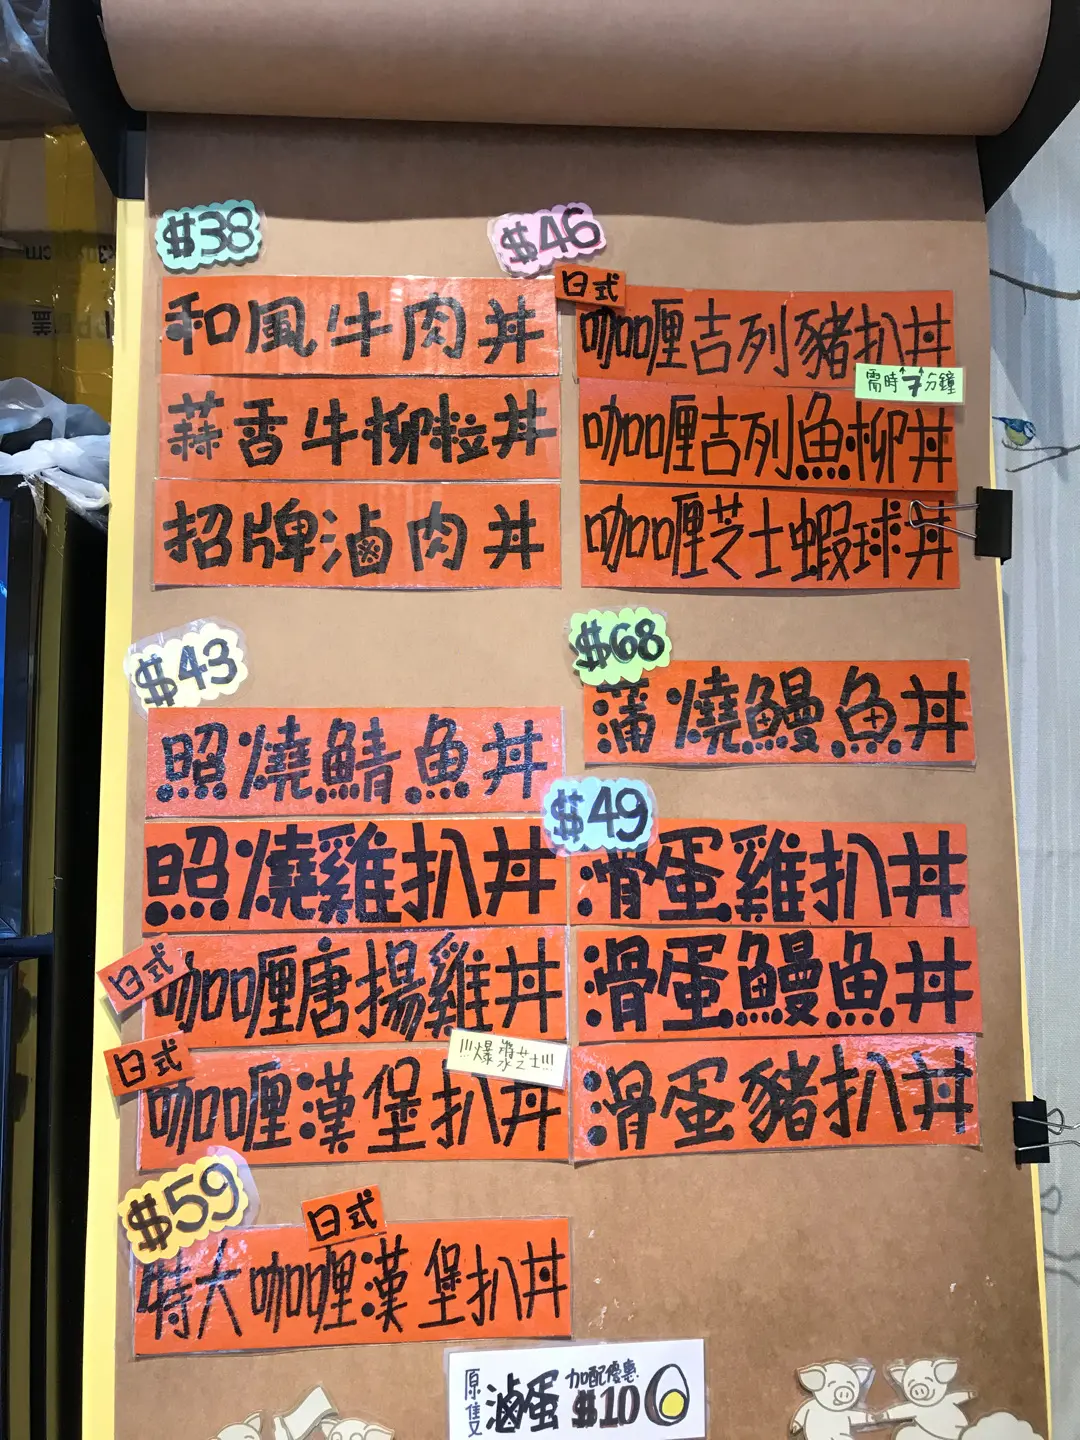 $38
和風牛肉丼
蒜香牛柳粒丼
招牌滷肉丼
$46
日式
咖喱吉列豬扒丼
需時7分鐘
咖喱吉列魚柳丼
咖喱芝士蝦球丼
$43
照燒鯖魚丼
照燒雞扒丼
日式
咖喱唐揚雞丼
日式
咖喱漢堡扒丼
!!!爆漿芝士!!!
$68
蒲燒鰻魚丼
$49
滑蛋雞扒丼
滑蛋鰻魚丼
滑蛋豬扒丼
$59
日式
特大咖喱漢堡扒丼
原隻
滷蛋
加配優惠
$10